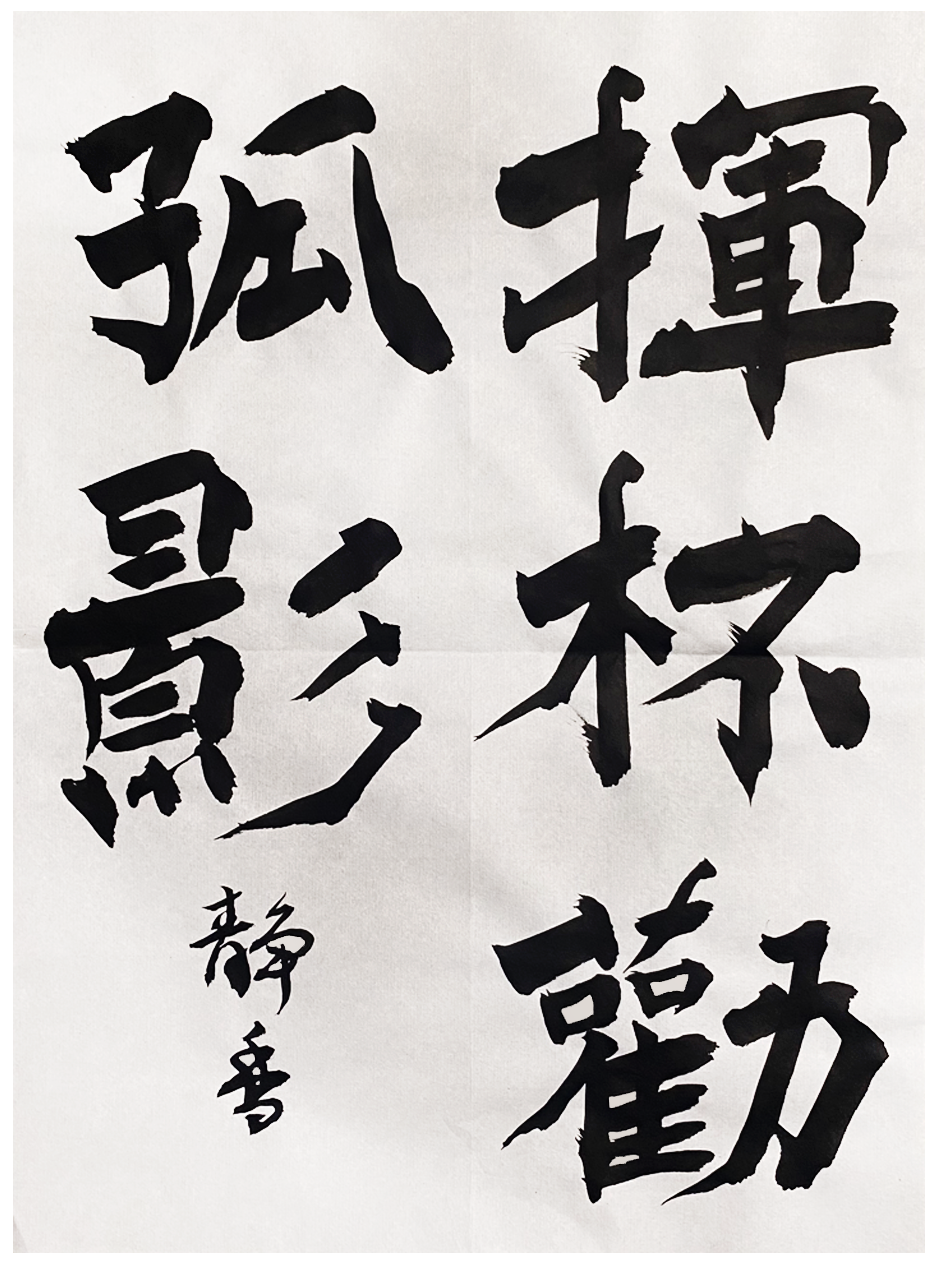 揮杯勸
孤影
静香